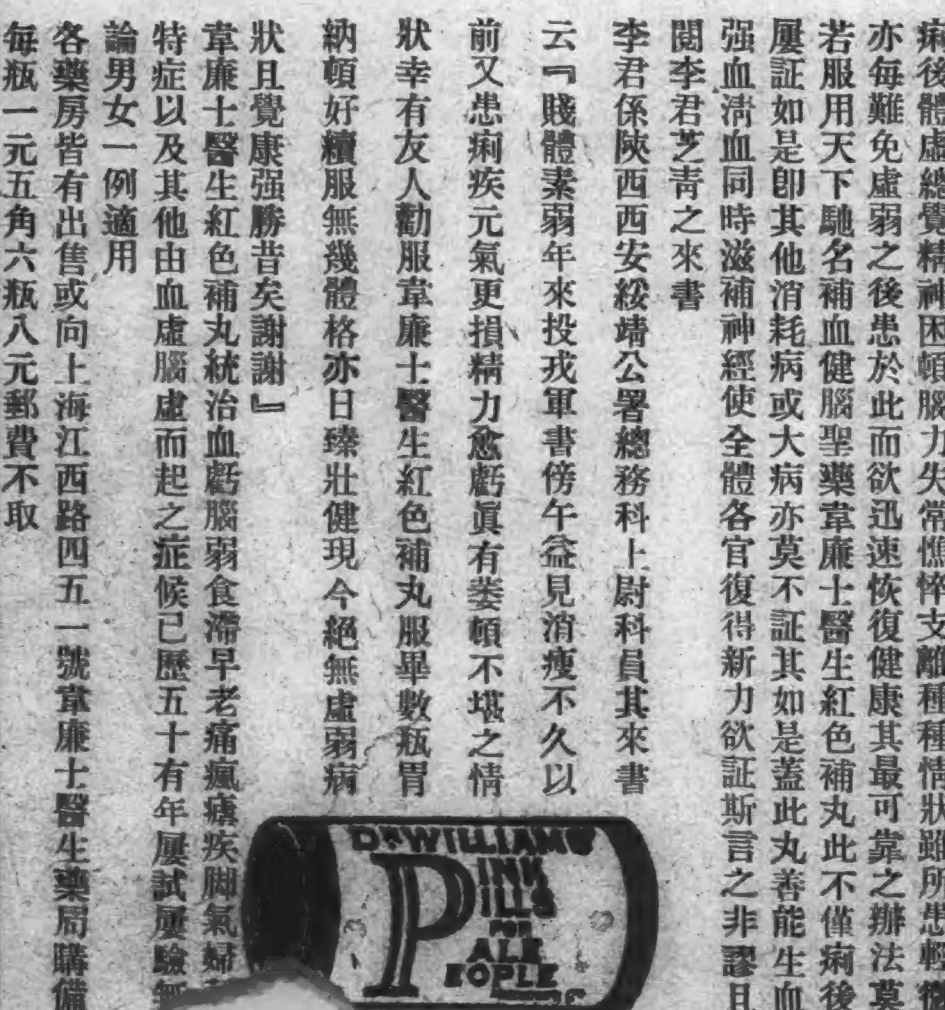 痢後體虛總覺精神困頓腦力失常憔悴支離種種情狀雖所患輕微
亦每難免虛弱之後患於此而欲迅速恢復健康其最可靠之辦法莫
若服用天下馳名補血健腦聖藥韋廉士醫生紅色補丸此不僅痢後
屢証如是卽其他消耗病或大病亦莫不証其如是蓋此丸善能生血
强血淸血同時滋補神經使全體各官復得新力欲証斯言之非謬且
閱李君芝靑之來書
李君係陝西西安綏靖公署總務科上尉科員其來書
云『賤體素弱年來投戎軍書傍午益見消瘦不久以
前又患痢疾元氣更損精力愈虧眞有萎頓不堪之情
狀幸有友人勸服韋廉士醫生紅色補丸服畢數瓶胃
納頓好續服無幾體格亦日臻壯健現今絕無虛弱病
狀且覺康强勝昔矣謝謝』
韋廉士醫生紅色補丸統治血虧腦弱食滯早老痛瘋瘧疾脚氣婦
特症以及其他由血虛腦虛而起之症候已歷五十有年屢試屢驗無
論男女一例適用
各藥房皆有出售或向上海江西路四五一號韋廉士醫生藥局購備
每瓶一元五角六瓶八元郵費不取
DR WILLIAMS
PINK
PILLS
FOR
PALE
PEOPLE